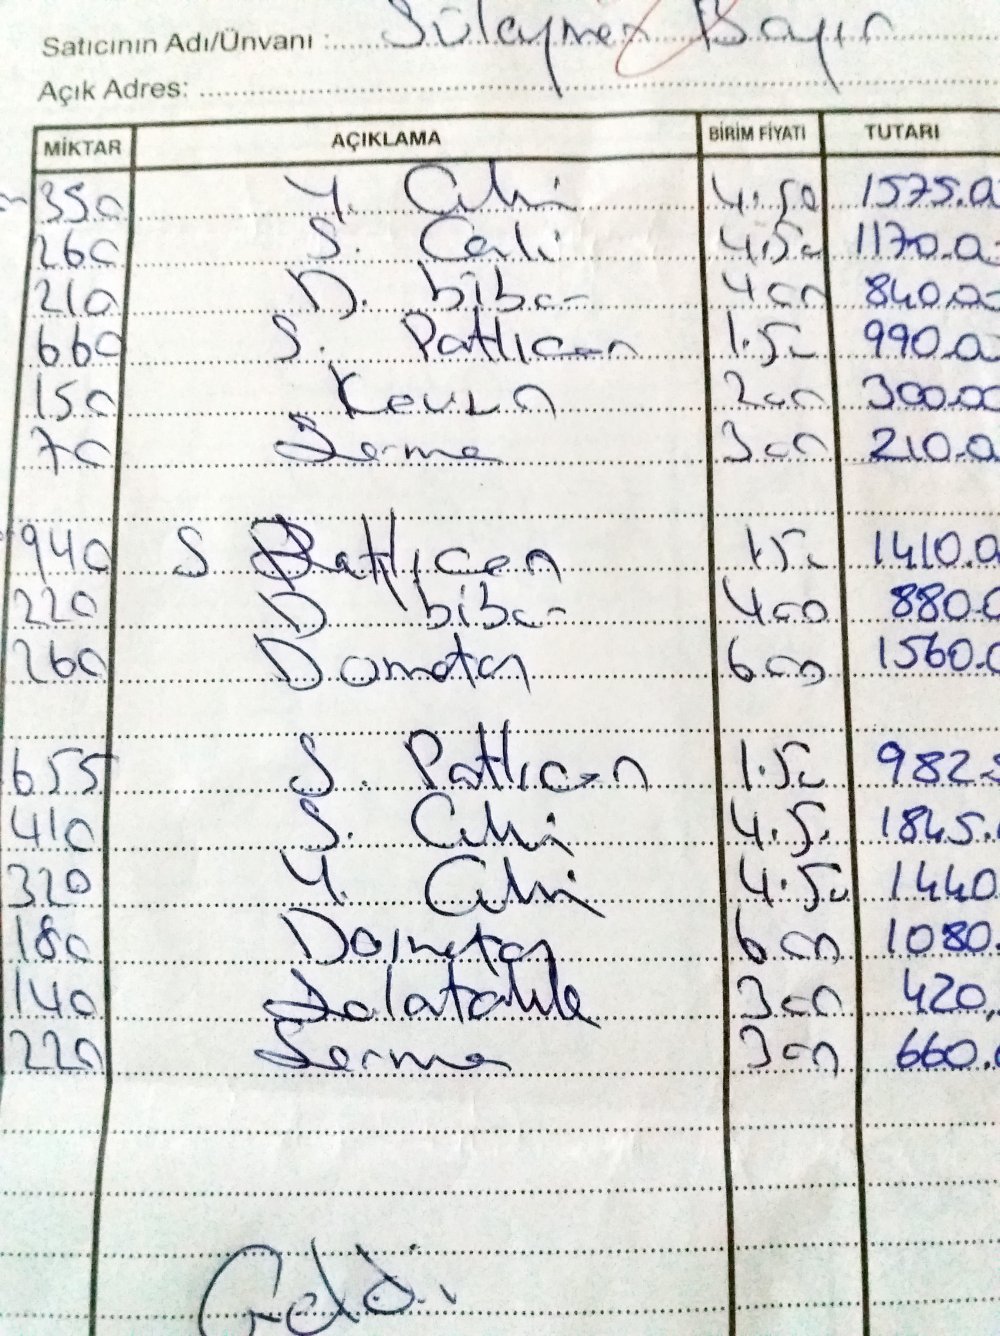 Satıcının Adı/Ünvanı : Süleyman Bayır
Açık Adres:
MİKTAR AÇIKLAMA BİRİM FİYATI TUTARI
350 Y. 4.50 1575.0
260 S. 4.50 1170.0
210 D. biber 400 840.0
660 S. Patlıcan 1.50 990.0
150 Kavun 200 300.00
70 Sarma 300 210.0
940 S Patlıcan 1.50 1410.0
220 D biber 400 880.0
260 Domates 600 1560.0
655 S. Patlıcan 1.50 982.5
410 S. 4.50 1845.
320 Y. 4.50 1440
180 Domates 600 1080.
140 Salatalık 300 420,
220 Sarma 300 660.0
Geldi